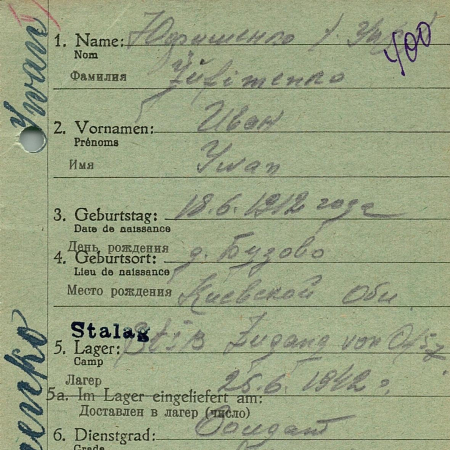 Ywan
enko
400
1. Name:
Nom
Фамилия
2. Vornamen: Иван
Prénoms
Имя Ywan
3. Geburtstag: 18.6.1912 года
Date de naissance
День рождения
4. Geburtsort: д. Бузово
Lieu de naissance
Место рождения Киевской Обл
Stalag
5. Lager: Zugang von
Camp
Лагер 25.6.1942 г.
5a. Im Lager eingeliefert am:
Доставлен в лагер (число)
6. Dienstgrad: Солдат
Grade